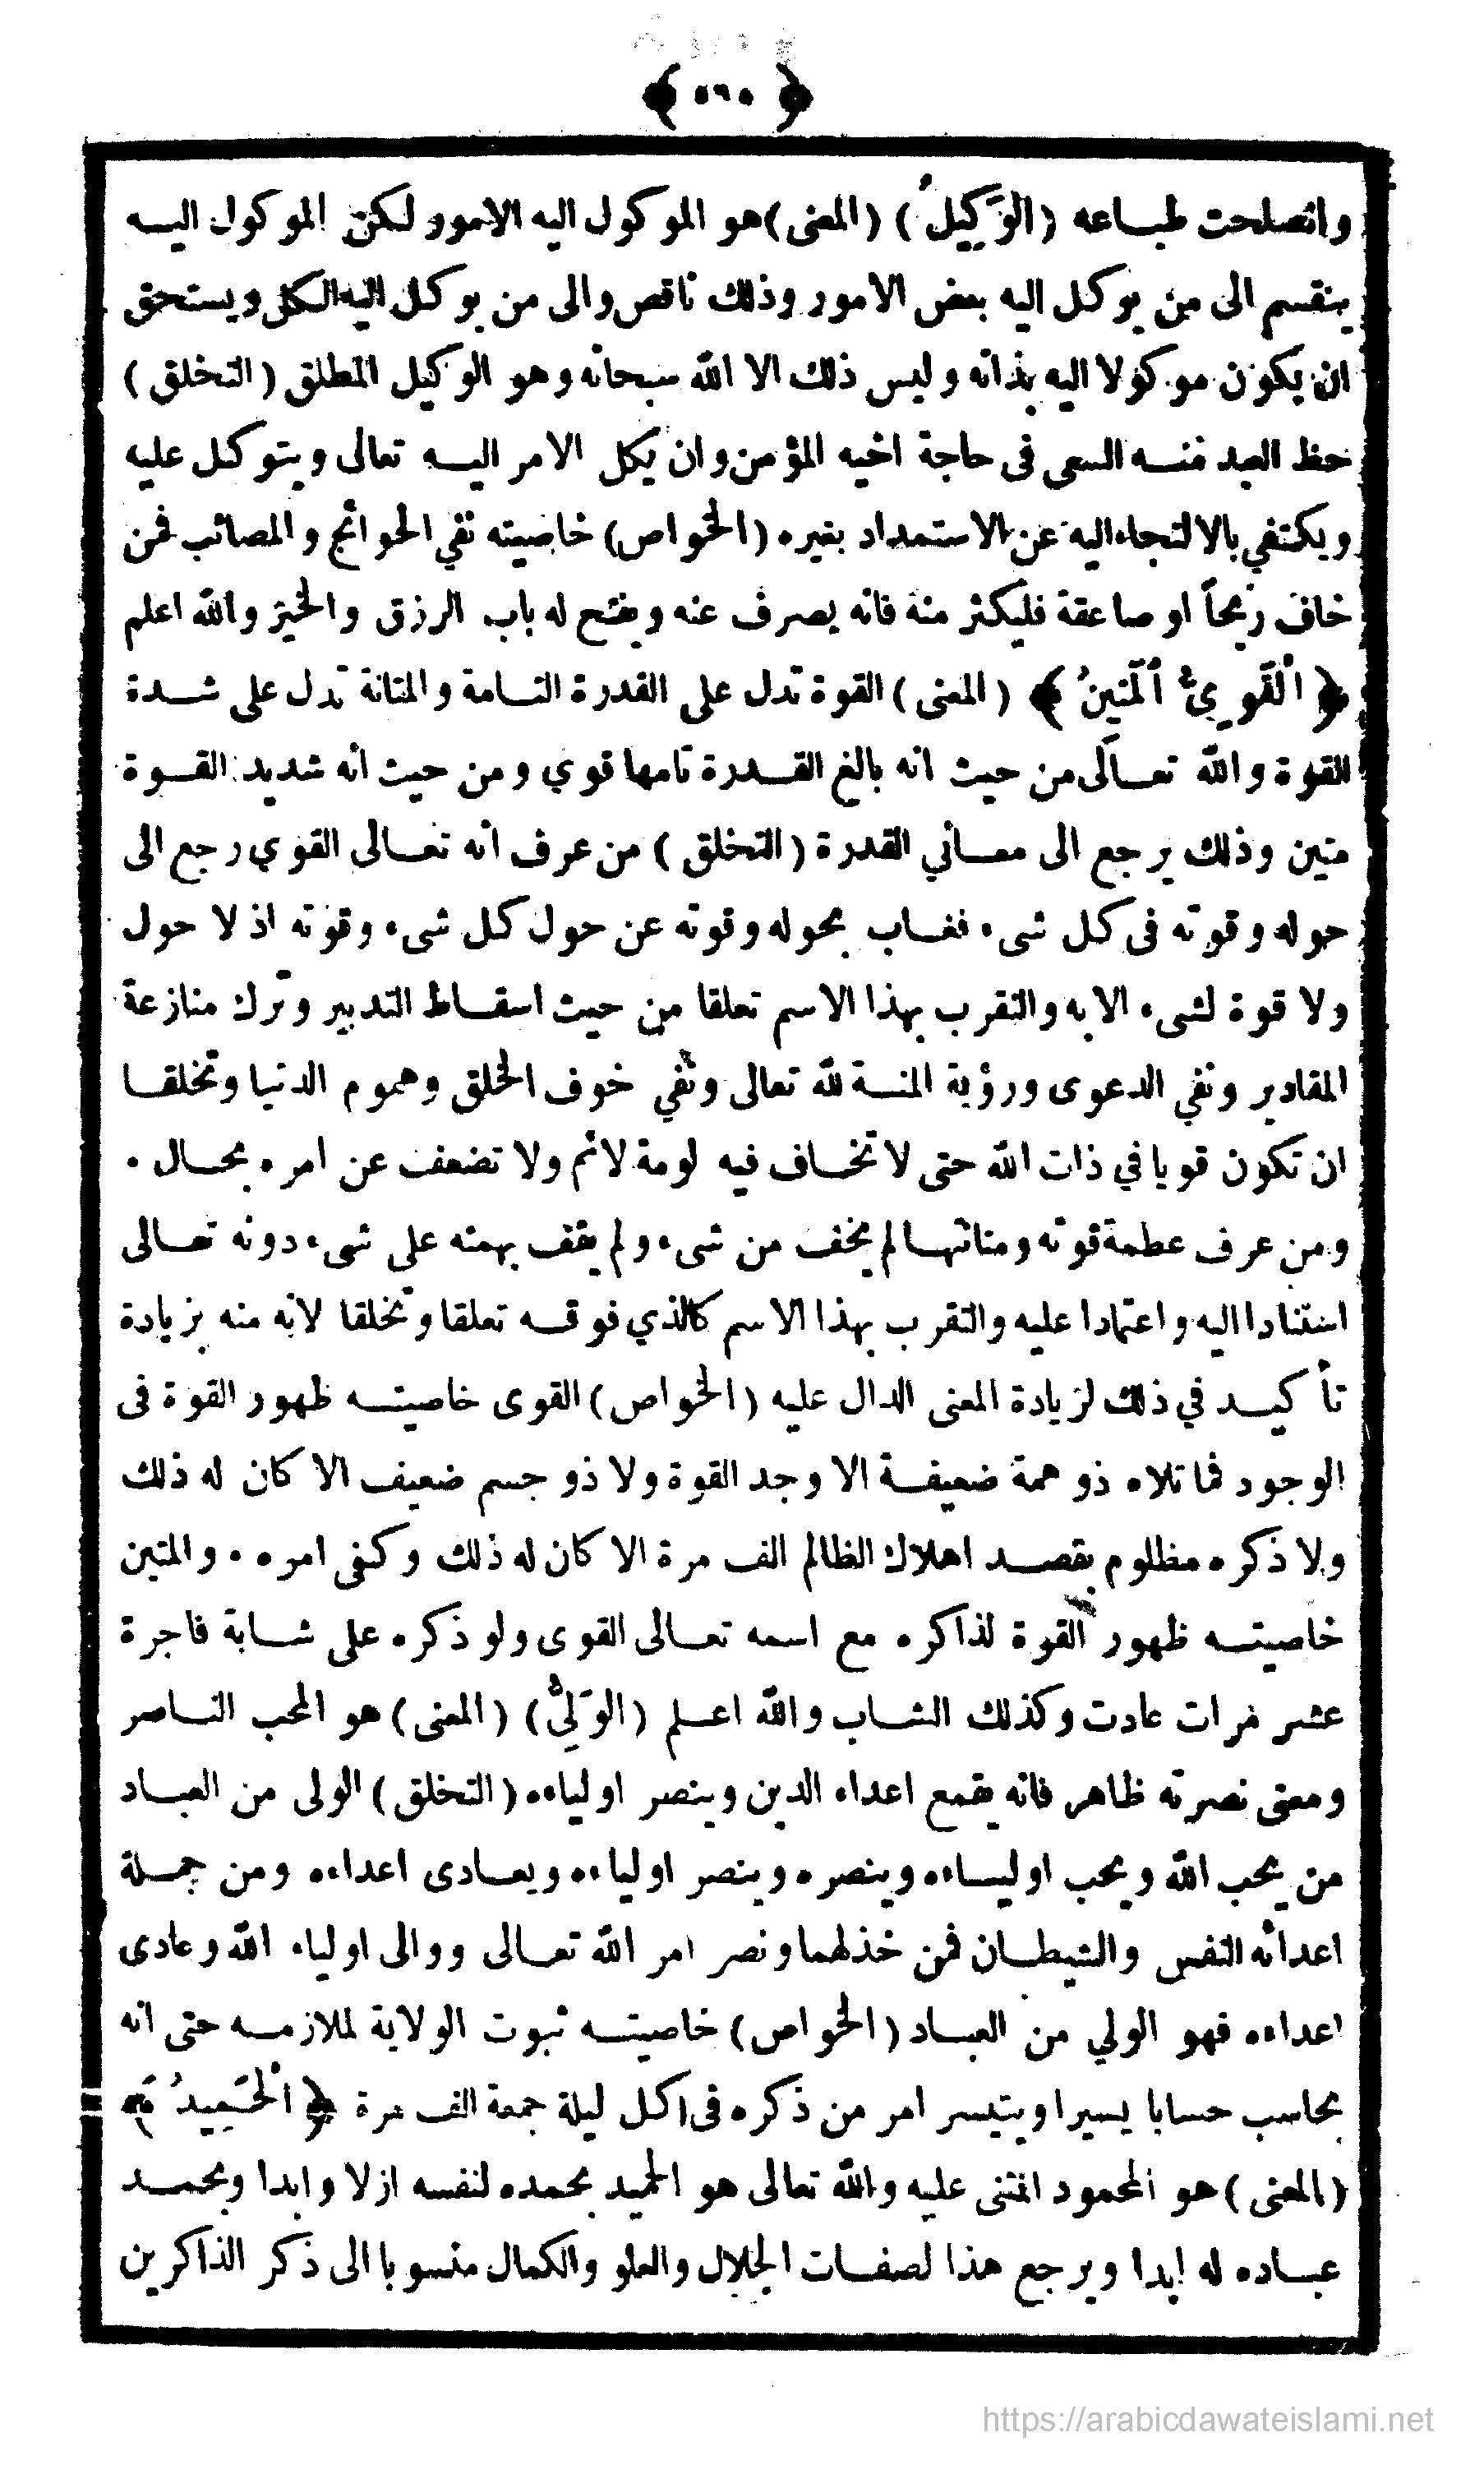 ﴿ ٥٦٥ ﴾
وانصلحت طباعه (الوَكِيلُ) (المعنى) هو الموكول اليه الامور لكن الموكول اليه
ينقسم الى من يوكل اليه بعض الامور وذلك ناقص والى من يوكل اليه الكل ويستحق
ان يكون موكولا اليه بذاته وليس ذلك الا الله سبحانه وهو الوكيل المطلق (التخلق)
حظ العبد منه السعى فى حاجة اخيه المؤمن وان يكل الامر اليه تعالى ويتوكل عليه
ويكتفي بالالتجاء اليه عن الاستمداد بغيره (الخواص) خاصيته نفي الحوائج والمصائب فمن
خاف ريحاً او صاعقة فليكثر منه فانه يصرف عنه ويفتح له باب الرزق والخير والله اعلم
﴿ الْقَوِيُّ الْمَتِينُ ﴾ (المعنى) القوة تدل على القدرة التامة والمتانة تدل على شدة
القوة والله تعالى من حيث انه بالغ القدرة تامها قوي ومن حيث انه شديد القوة
متين وذلك يرجع الى معاني القدرة (التخلق) من عرف انه تعالى القوي رجع الى
حوله وقوته فى كل شىء فغاب بحوله وقوته عن حول كل شىء وقوته اذ لا حول
ولا قوة لشىء الا به والتقرب بهذا الاسم تعلقا من حيث اسقاط التدبير وترك منازعة
المقادير ونفي الدعوى ورؤية المنة لله تعالى ونفي خوف الخلق وهموم الدنيا وتخلقا
ان تكون قويا في ذات الله حتى لا تخاف فيه لومة لائم ولا تضعف عن امره بحال .
ومن عرف عظمة قوته ومتانتها لم يخف من شىء ولم يقف بهمته على شىء دونه تعالى
استنادا اليه واعتمادا عليه والتقرب بهذا الاسم كالذي فوقه تعلقا وتخلقا لانه منه بزيادة
تأكيد في ذلك لزيادة المعنى الدال عليه (الخواص) القوى خاصيته ظهور القوة فى
الوجود فما تلاه ذو همة ضعيفة الا وجد القوة ولا ذو جسم ضعيف الا كان له ذلك
ولا ذكره مظلوم بقصد اهلاك الظالم الف مرة الا كان له ذلك وكفى امره . والمتين
خاصيته ظهور القوة لذاكره مع اسمه تعالى القوى ولو ذكره على شابة فاجرة
عشر مرات عادت وكذلك الشاب والله اعلم (الوَلِيُّ) (المعنى) هو المحب الناصر
ومعنى نصرته ظاهر فانه يقمع اعداء الدين وينصر اولياءه (التخلق) الولى من العباد
من يحب الله ويحب اولياءه وينصره وينصر اولياءه ويعادى اعداءه ومن جملة
اعدائه النفس والشيطان فمن خذلهما ونصر امر الله تعالى ووالى اولياء الله وعادى
اعداءه فهو الولي من العباد (الخواص) خاصيته ثبوت الولاية لملازمه حتى انه
يحاسب حسابا يسيرا ويتيسر امر من ذكره فى كل ليلة جمعة الف مرة ﴿ الْحَمِيدُ ﴾
(المعنى) هو المحمود المثنى عليه والله تعالى هو الحميد بحمده لنفسه ازلا وابدا وبحمد
عباده له ابدا ويرجع هذا لصفات الجلال والعلو والكمال منسوبا الى ذكر الذاكرين
https://arabicdawateislami.net